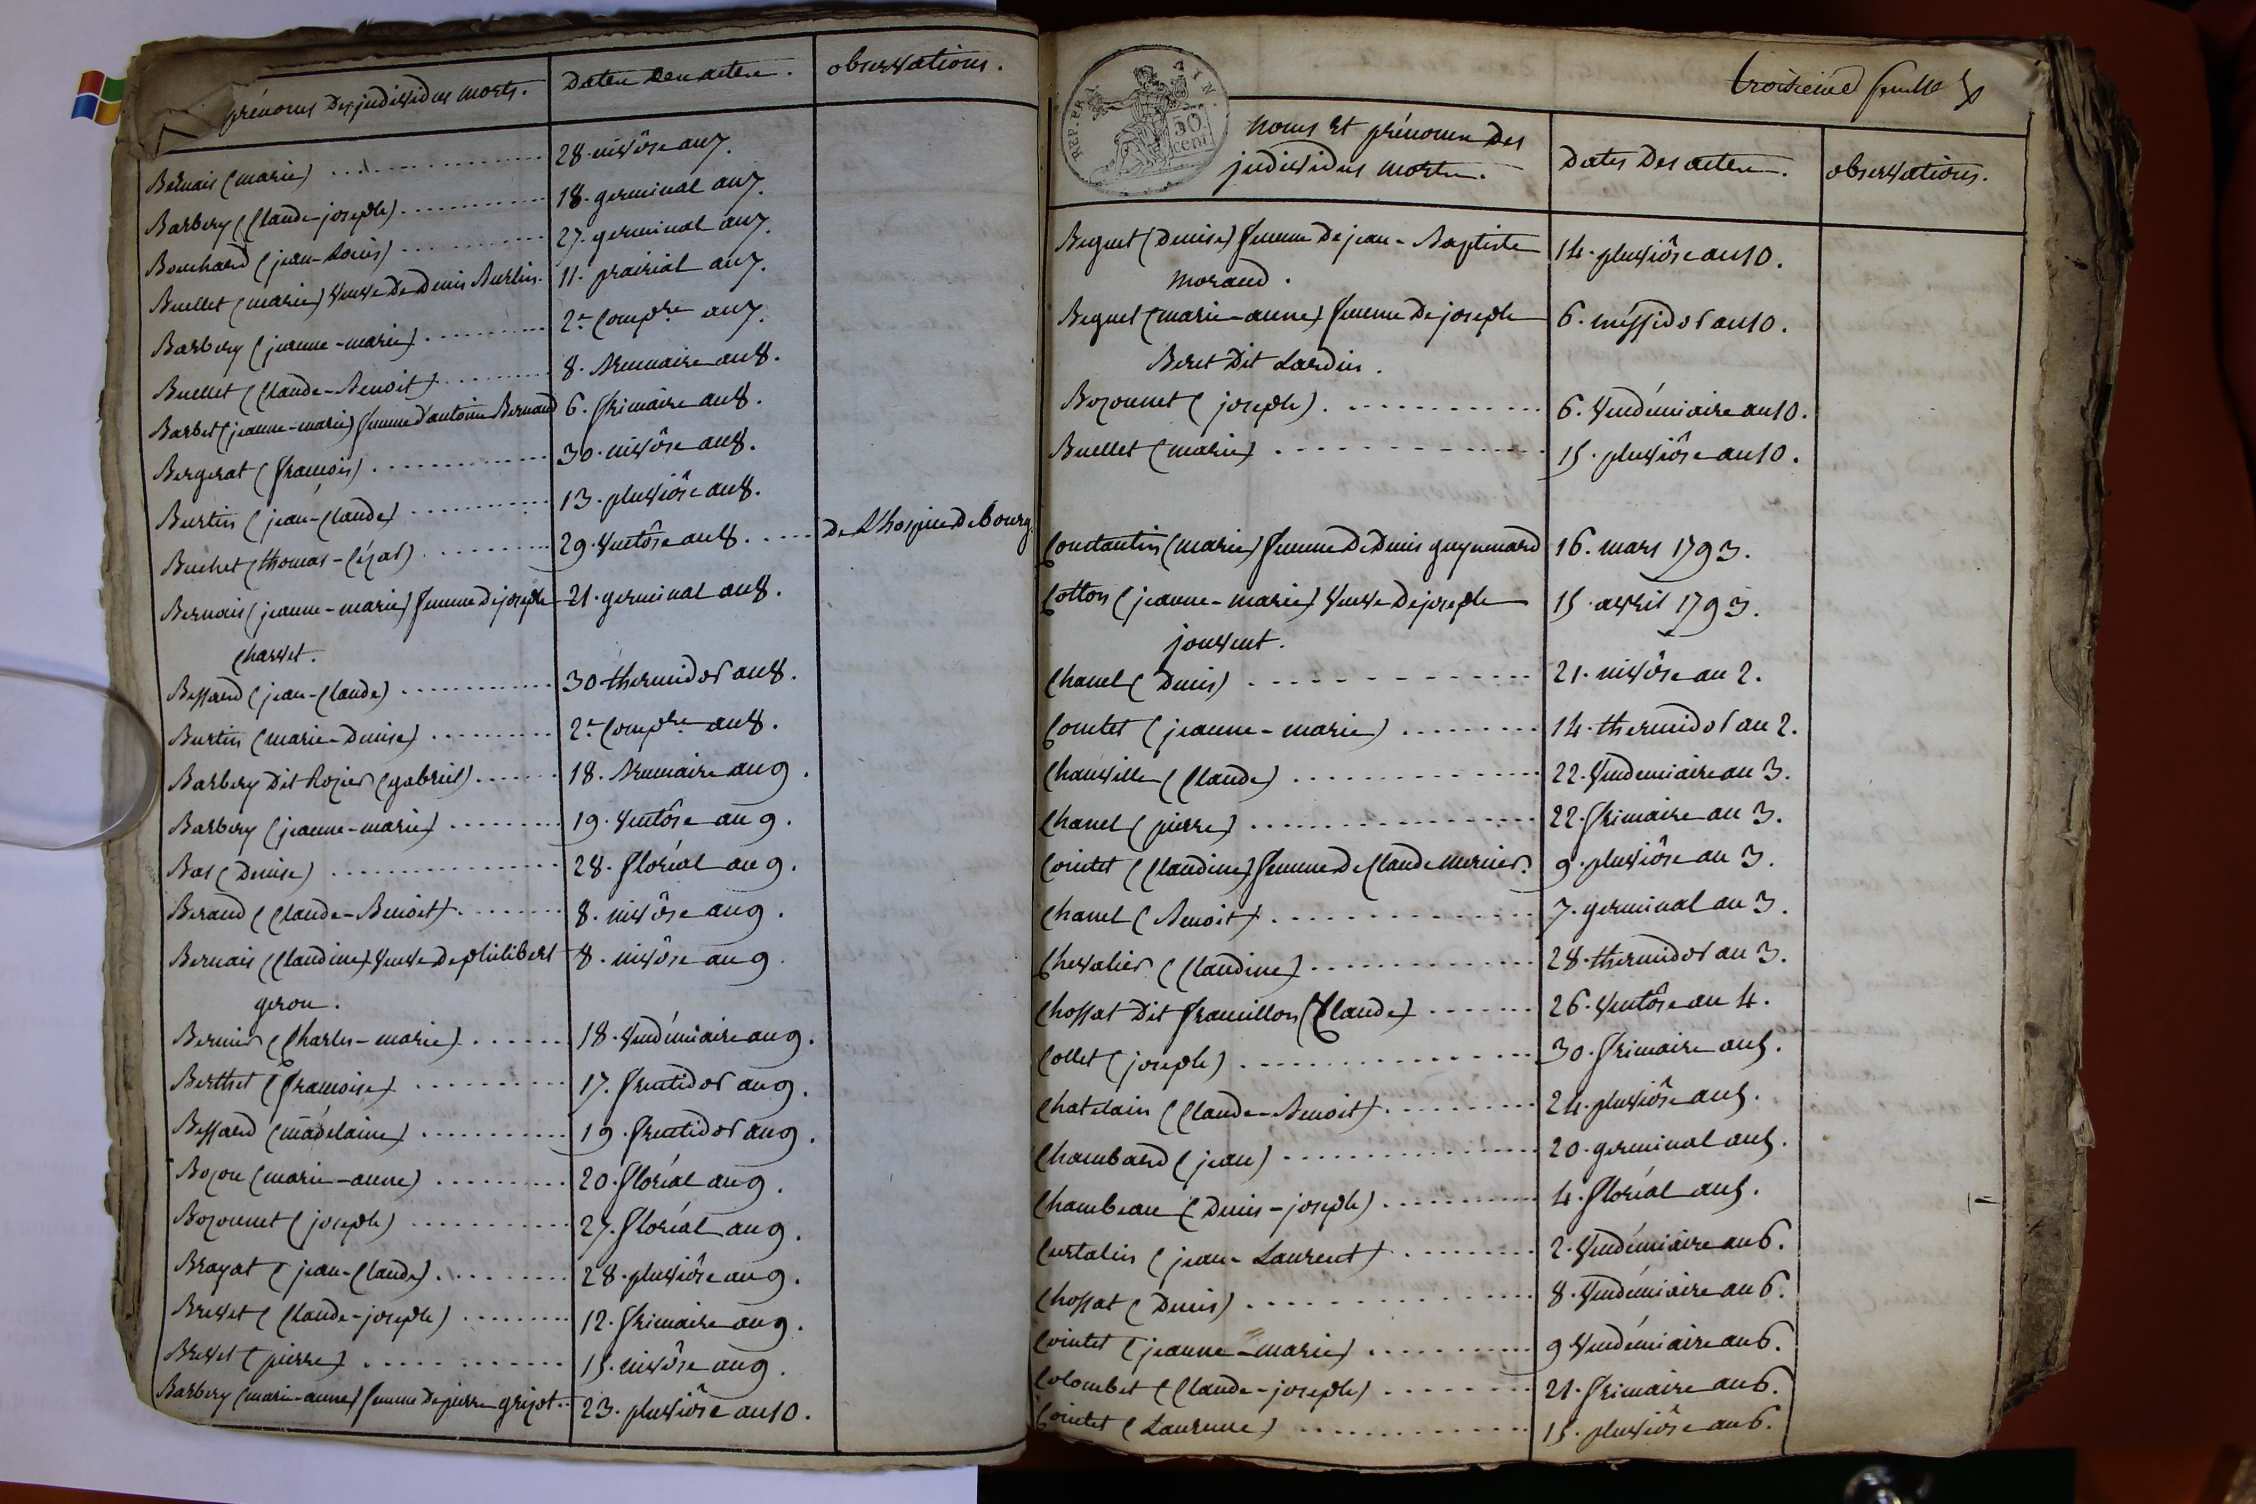 prénoms des individus morts. Dates des actes. observations.
Bernais (marie) 28. nivôse an 7.
Barbery (Claude-joseph) 18. germinal an 7.
Bouchard (jean-Louis) 27. germinal an 7.
Buellet (marie) veuve de Denis Burtin. 11. prairial an 7.
Barbery (jeanne-marie) 2.e Comp.re an 7.
Buellet (Claude-Benoit) 8. Brumaire an 8.
Barbet (jeanne-marie) femme d'antoine Bernard 6. frimaire an 8.
Bergerat (françois) 30. nivôse an 8.
Burtin (jean-Claude) 13. pluviôse an 8.
Buchet (thomas-Cézar) 29. Ventôse an 8. De L'hospice de bourg.
Bernais (jeanne-marie) femme de joseph 21. germinal an 8.
Charvet.
Bessard (jean-Claude) 30 thermidor an 8.
Burtin (marie-Denise) 2.e Comp.re an 8.
Barbery Dit Rozier (gabriel) 18. Brumaire an 9.
Barbery (jeanne-marie) 19. Ventôse an 9.
Bas (Denise) 28. floréal an 9.
Beraud (Claude-Benoit) 8. nivôse an 9.
Bernais (Claudine) Veuve de philibert 8. nivôse an 9.
geron.
Bernier (Charles-marie) 18. Vendémiaire an 9.
Berthet (françoise) 17. fructidor an 9.
Bessard (madelaine) 19. fructidor an 9.
Bozon (marie-anne) 20. floréal an 9.
Bozonnet (joseph) 27. floréal an 9.
Brayat (jean-Claude) 28. pluviôse an 9.
Brevet (Claude-joseph) 12. frimaire an 9.
Brevet (pierre) 15. nivôse an 9.
Barbery (marie-anne) femme de pierre grizot 23. pluviôse an 10.
troisième feuille
REP. FRA. TIN.
50 cent
Noms Et prénoms Des
individus morts. Dates Des actes. observations.
Beguet (Denise) femme De jean-Baptiste 14. pluviôse an 10.
Morand.
Beguet (marie-anne) femme De joseph 6. méssidor an 10.
Beret Dit Lardin.
Bozonnet (joseph) 6. Vendémiaire an 10.
Buellet (marie) 15. pluviôse an 10.
Constantin (marie) femme De Denis guyennard 16. mars 1793.
Cotton (jeanne-marie) Veuve De joseph 15. avril 1793.
jouvent.
Chanel (Denis) 21. nivôse an 2.
Comtet (jeanne-marie) 14. thermidor an 2.
Chanville (Claude) 22. Vendemiaire an 3.
Chanel (pierre) 22. frimaire an 3.
Cointet (Claudine) femme De Claude mercier. 9. pluviôse an 3.
Chanel (Benoit) 7. germinal an 3.
Chevalier (Claudine) 28. thermidor an 3.
Chossat Dit framillon (Claude) 26. Ventôse an 4.
Collet (joseph) 30. frimaire an 5.
Chatelain (Claude-Benoit) 24. pluviôse an 5.
Chambard (jean) 20. germinal an 5.
Chambeau (Denis-joseph) 4. floréal an 5.
Curtalin (jean-Laurent) 2. Vendémiaire an 6.
Chossat (Denis) 8. Vendémiaire an 6.
Cointet (jeanne-marie) 9 Vendémiaire an 6.
Colombet (Claude-joseph) 21. frimaire an 6.
Cointet (Laurence) 15. pluviôse an 6.